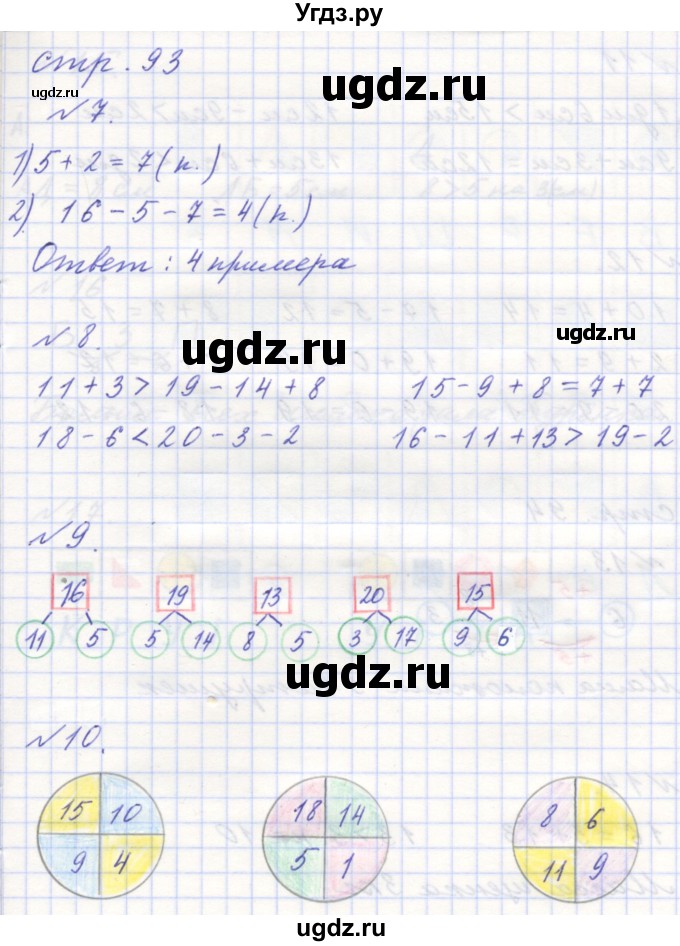 Угдз.ру
стр. 93
ugdz.ru
ugdz.ru
№7.
1) 5 + 2 = 7 (п.)
2) 16 - 5 - 7 = 4 (п.)
Ответ : 4 примера
ugdz.ru
ugdz.ru
№8.
11 + 3 > 19 - 14 + 8 15 - 9 + 8 = 7 + 7
18 - 6 < 20 - 3 - 2 16 - 11 + 13 > 19 - 2
№9.
16 19 13 20 15
11 5 5 14 8 5 3 17 9 6
ugdz.ru
№10.
15 10 18 14 8 6
9 4 5 1 11 9
ugdz.ru